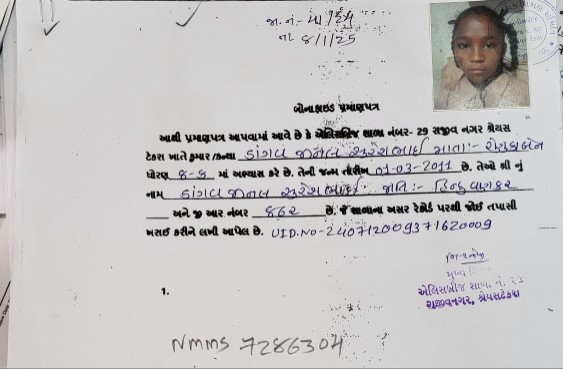 જા. નં- 
તા ૮/1/25
બોનાફાઇડ પ્રમાણપત્ર
આથી પ્રમાણપત્ર આપવામાં આવે છે કે એલિસબ્રિજ શાળા નંબર- 29 રાજીવ નગર શ્રેયસ
ટેકરા ખાતે કુમાર /કન્યા ડાંગવ જીનલ સુરેશભાઈ માતા:- રેણુકાબેન
ધોરણ ૪-ક માં અભ્યાસ કરે છે. તેની જન્મ તારીખ 01-03-2011 છે. તેઓ શ્રી નું
નામ ડાંગવ જીનલ સુરેશભાઈ. જાતિ:- હિન્દુ વણકર
અને જી આર નંબર ૪૬૨ છે. જે શાળાના અસર રેકોર્ડ પરથી જોઈ તપાસી
ખરાઈ કરીને લખી આપેલ છે. UID.NO-240712009371620009
એલિસબ્રીજ શાળા નં. ૨૯
રાજીવનગર, શ્રેયસટેકરા
1.
NMMS 7286304